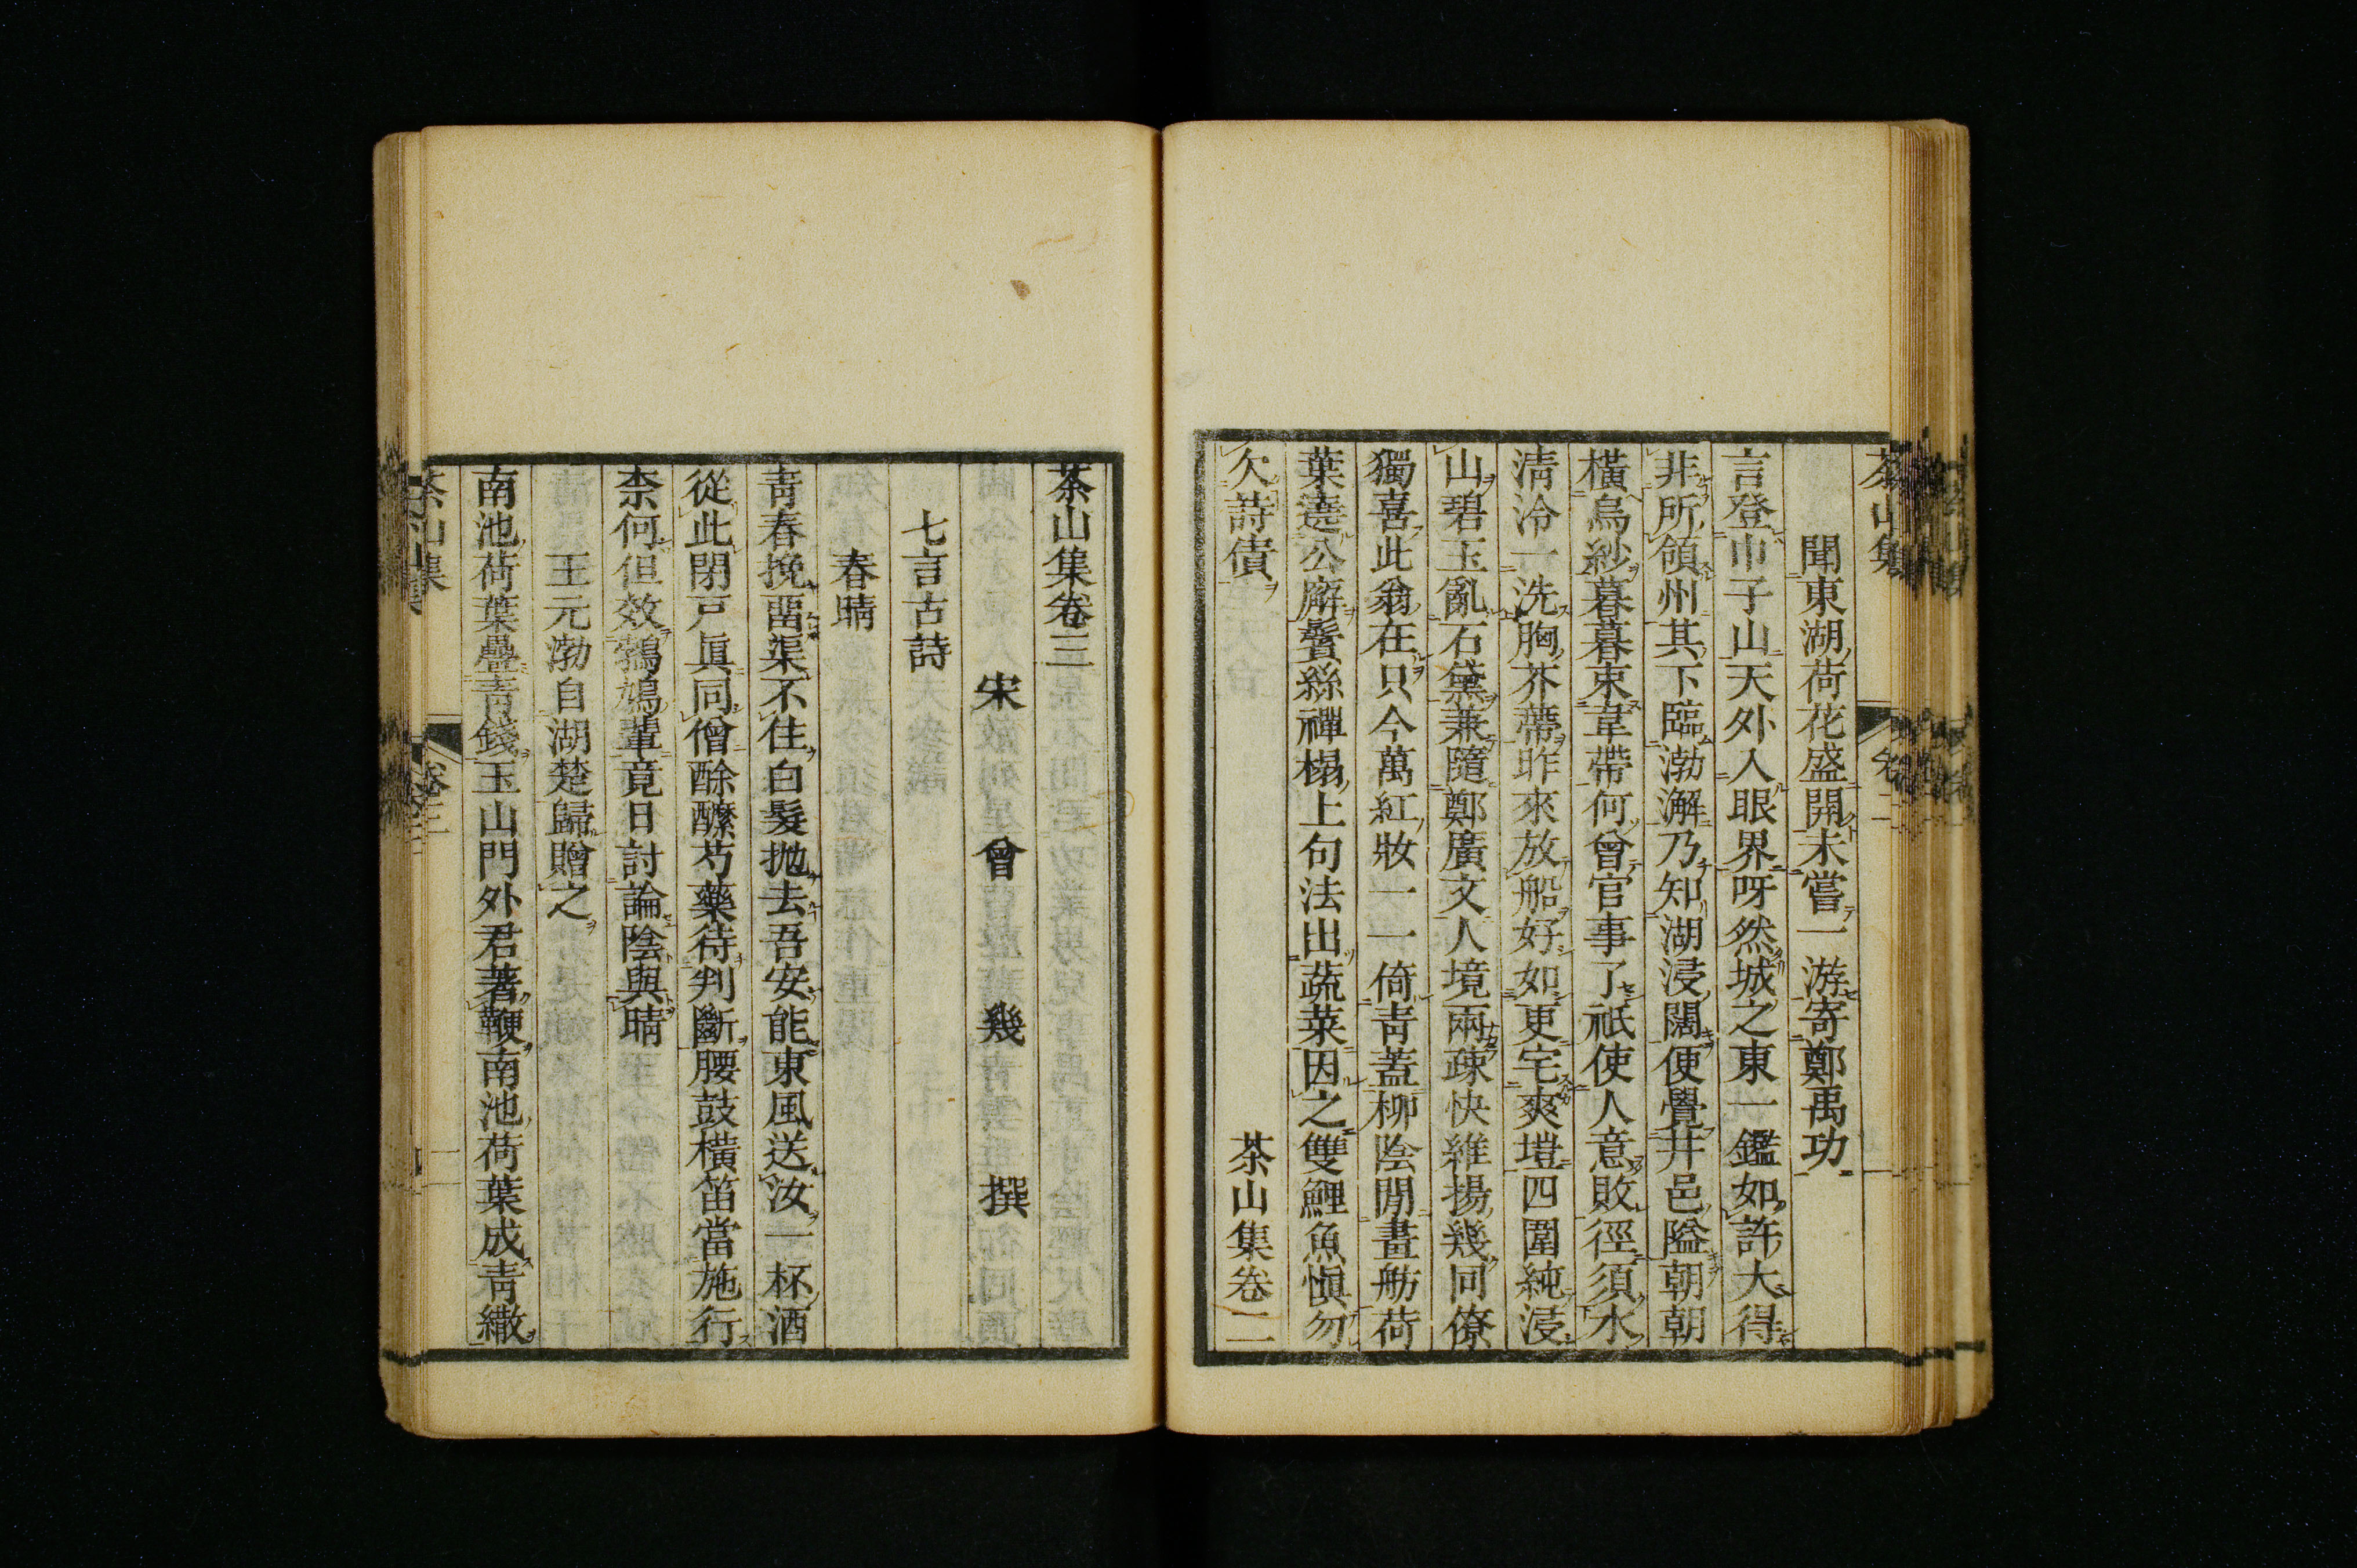 茶山集
聞東湖荷花盛開未嘗一游寄鄭禹功
言登巾子山天外入眼界呀然城之東一鑑如許大得
非所領州其下臨渤澥乃知湖浸闊便覺井邑隘朝朝
橫烏紗暮暮束韋帶何曾官事了祇使人意敗徑須水
清泠一洗胸芥蔕昨來放船好如更宅爽塏四圍純浸
山碧玉亂石黛兼隨鄭廣文人境兩疎快維揚幾同僚
獨喜此翁在只今萬紅妝一一倚靑蓋柳陰閒畫舫荷
葉遶公廨鬢絲禪榻上句法出蔬菜因之雙鯉魚愼勿
欠詩債
茶山集卷二
茶山集卷三
宋 曾 幾 撰
七言古詩
春晴
靑春挽畱渠不住白髮拋去吾安能東風送汝一杯酒
從此閉戸眞同僧酴醾芍藥待判斷腰鼓橫笛當施行
柰何但效鵓鳩輩竟日討論陰與晴
王元渤自湖楚歸贈之
南池荷葉疊靑錢玉山門外君著鞭南池荷葉成靑繖
茶山集
卷三
一